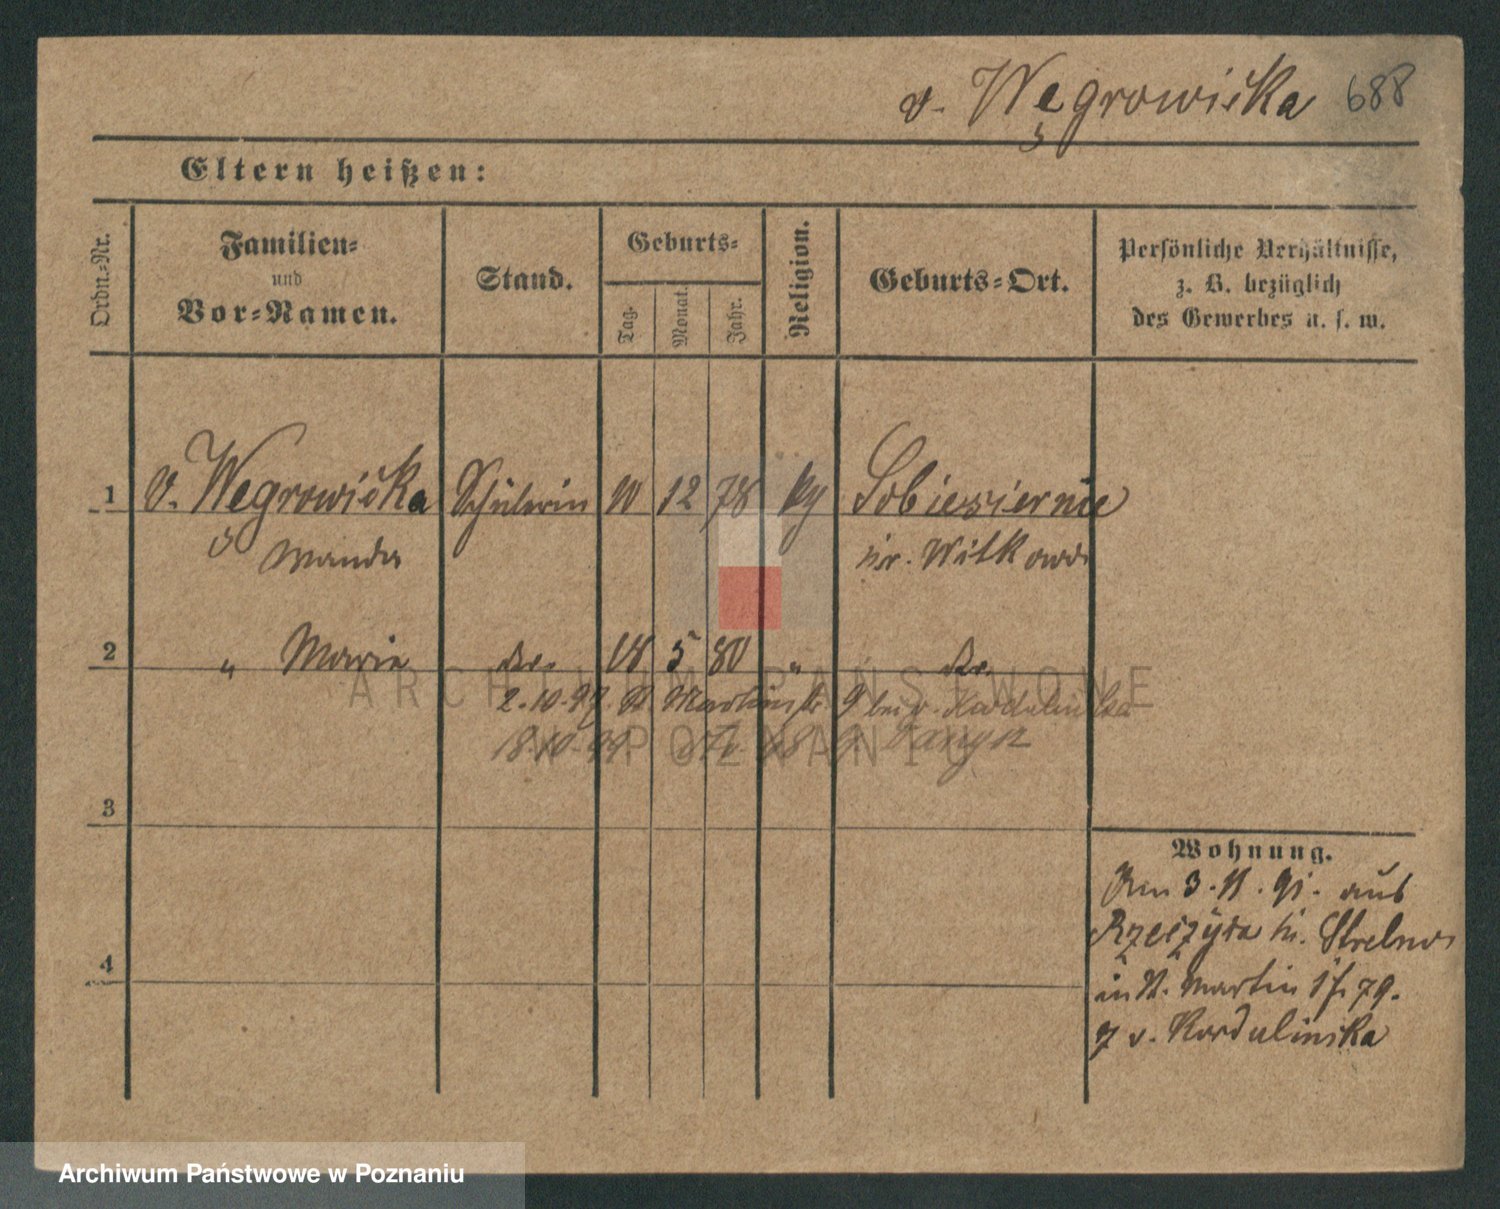 v. Węgrowićka 688
Eltern heißen:
Ordn.=Nr.
Familien=
und
Vor=Namen.
Stand.
Geburts=
Tag.
Monat.
Jahr.
Religion.
Geburts=Ort.
Persönliche Verhältnisse,
z. B. bezüglich
des Gewerbes u. s. w.
1 v. Wegrowićka Schülerin 10 12 78 Sobiesiernie
Wanda kr. Witkowo
2 " Marie do. 18 5 80 " do.
2.10.97. St. Martinstr. 9 bei v. Kordulinska
18.10.
3
4
Wohnung.
Am 3. 11. 91. aus
Rzeczyca kr. Strelno
in St. Martin 79.
v. Kordulinska
ARCHIWUM PAŃSTWOWE
W POZNANIU
Archiwum Państwowe w Poznaniu